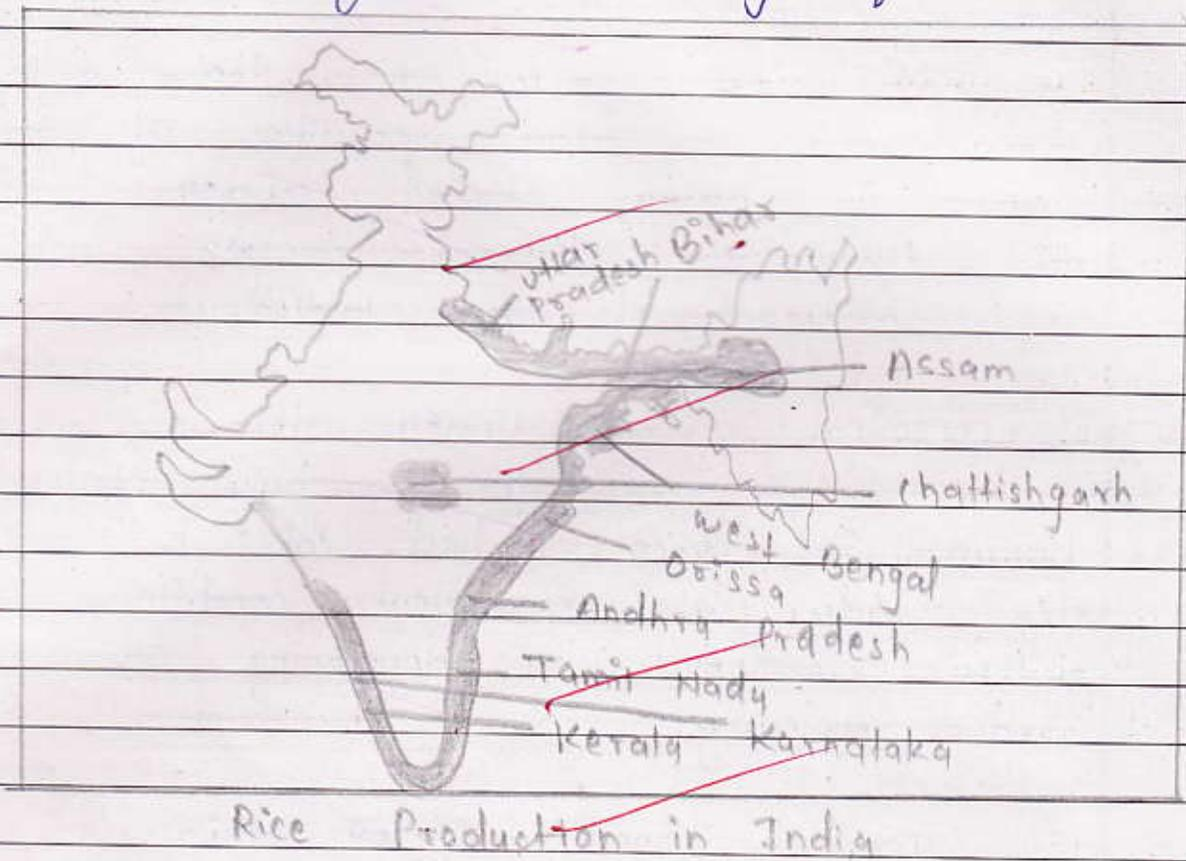 Uttar
Pradesh Bihar
Assam
Chattishgarh
West Bengal
Orissa
Andhra Pradesh
Tamil Nadu
Kerala Karnataka
Rice Production in India